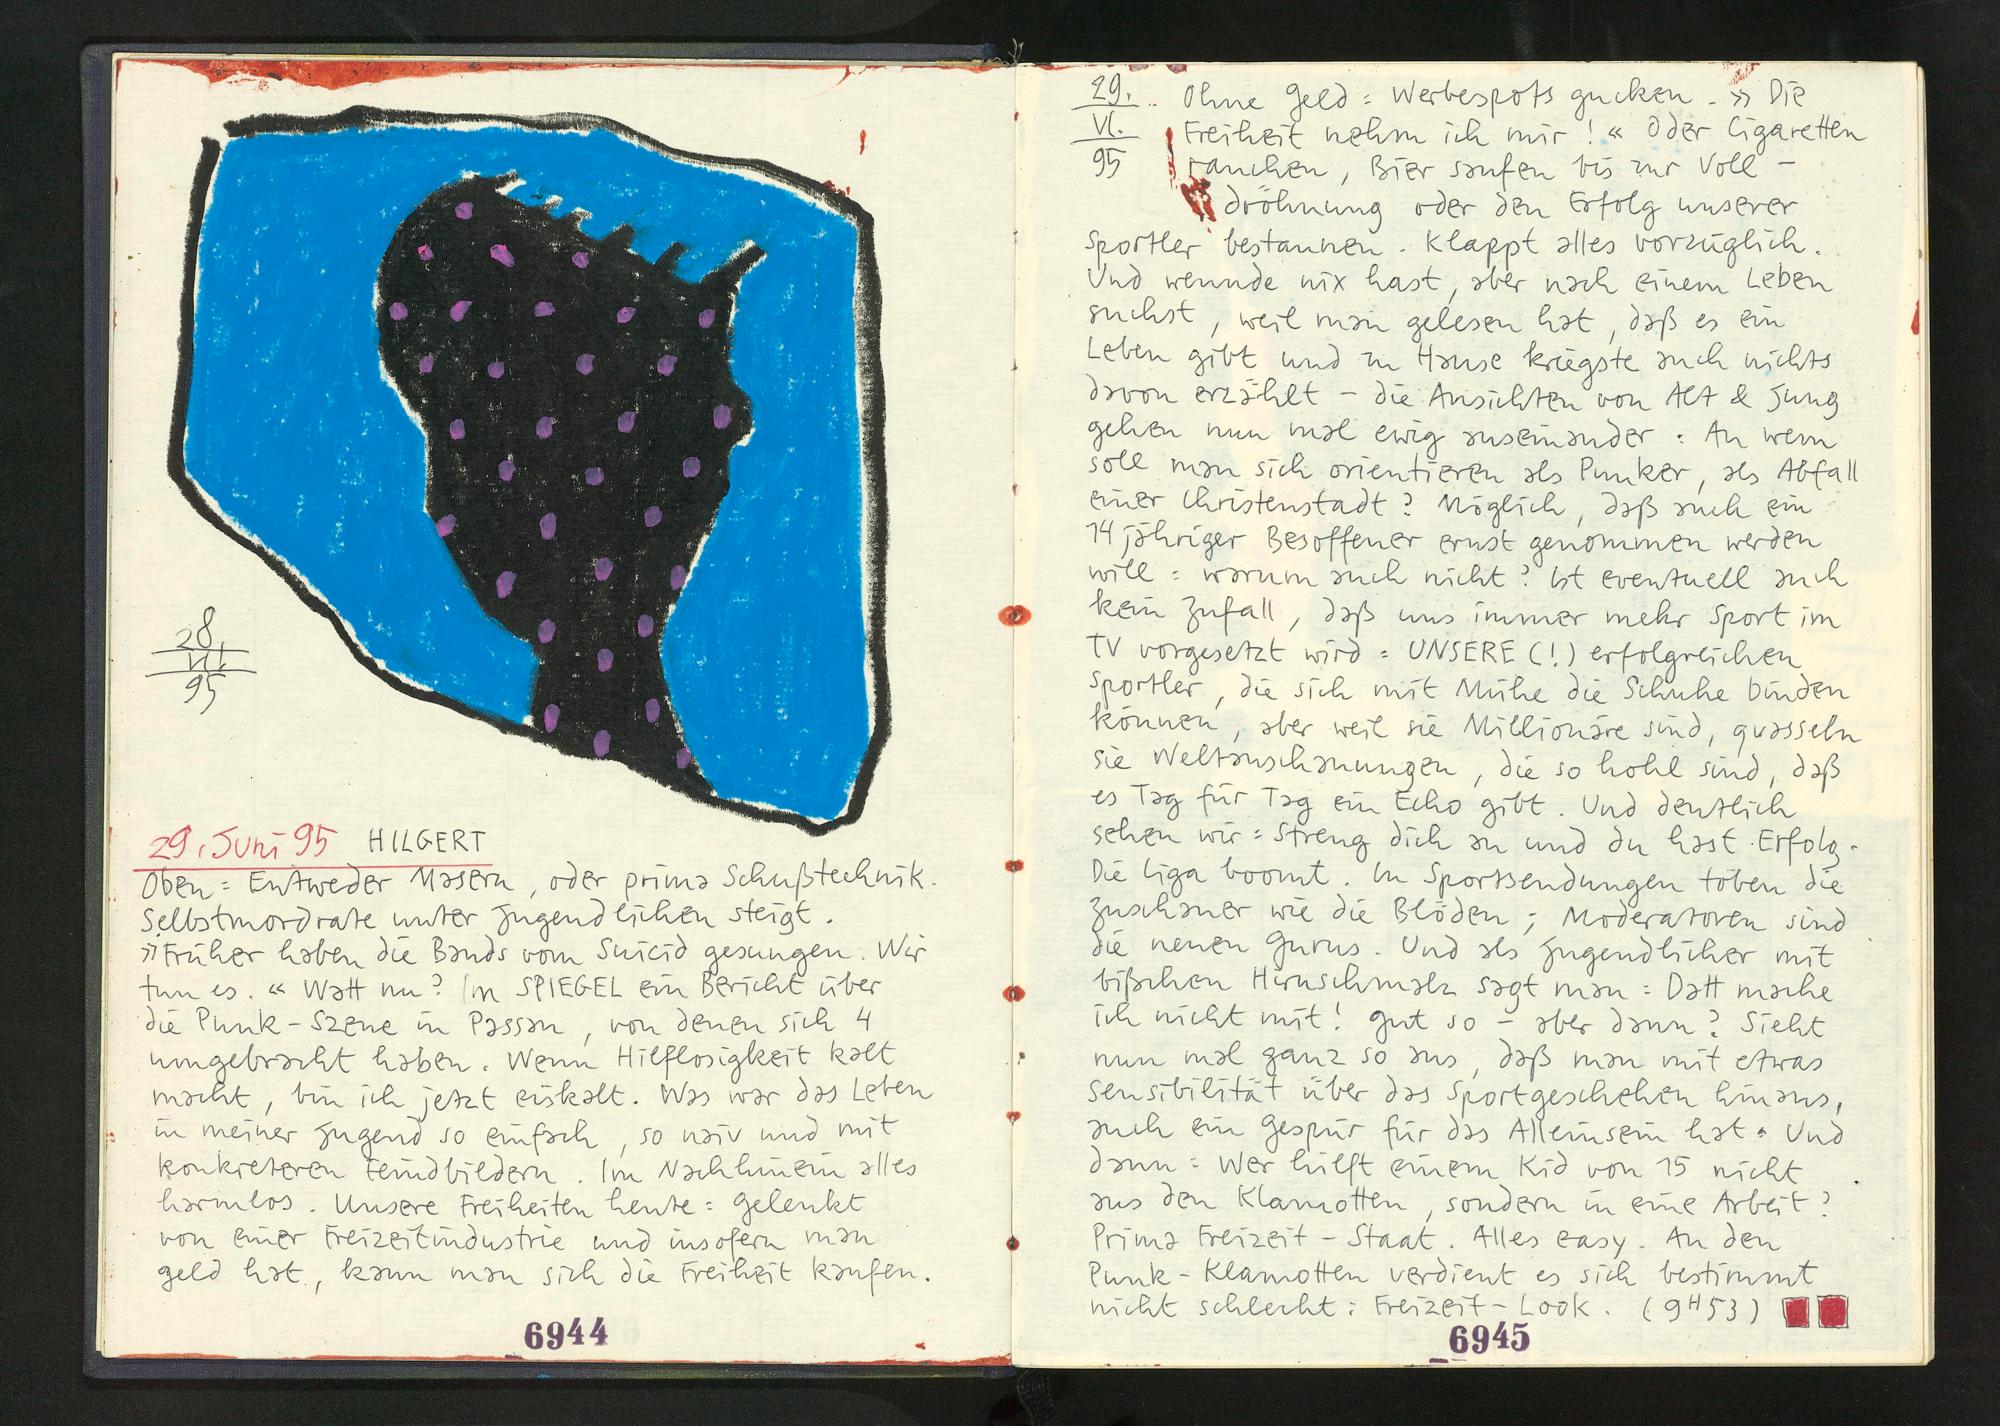 28
VII
95
29. Juni 95 HILGERT
Oben = Entweder Masern, oder prima Schußtechnik.
Selbstmordrate unter Jugendlichen steigt.
»Früher haben die Bands vom Suicid gesungen. Wir
tun es.« Watt nu? Im SPIEGEL ein Bericht über
die Punk-Szene in Passau, von denen sich 4
umgebracht haben. Wenn Hilflosigkeit kalt
macht, bin ich jetzt eiskalt. Was war das Leben
in meiner Jugend so einfach, so naiv und mit
konkreteren Feindbildern. Im Nachhinein alles
harmlos. Unsere Freiheiten heute = gelenkt
von einer Freizeitindustrie und insofern man
Geld hat, kann man sich die Freiheit kaufen.
6944
29.
VI.
95
Ohne Geld = Werbespots gucken. »Die
Freiheit nehm ich mir!« Oder Cigaretten
rauchen, Bier saufen bis zur Voll-
dröhnung oder den Erfolg unserer
Sportler bestaunen. Klappt alles vorzüglich.
Und wennde nix hast, aber nach einem Leben
suchst, weil man gelesen hat, daß es ein
Leben gibt und zu Hause kriegste auch nichts
davon erzählt – die Ansichten von Alt & Jung
gehen nun mal ewig auseinander: An wem
soll man sich orientieren als Punker, als Abfall
einer Christenstadt? Möglich, daß auch ein
14jähriger Besoffener ernst genommen werden
will = warum auch nicht? Ist eventuell auch
kein Zufall, daß uns immer mehr Sport im
TV vorgesetzt wird = UNSERE (!) erfolgreichen
Sportler, die sich mit Mühe die Schuhe binden
können, aber weil sie Millionäre sind, quasseln
sie Weltanschauungen, die so hohl sind, daß
es Tag für Tag ein Echo gibt. Und deutlich
sehen wir = Streng dich an und du hast Erfolg.
Die Liga boomt. In Sportsendungen toben die
Zuschauer wie die Blöden; Moderatoren sind
die neuen Gurus. Und als Jugendlicher mit
bißchen Hirnschmalz sagt man = Datt mache
ich nicht mit! Gut so – aber dann? Sieht
nun mal ganz so aus, daß man mit etwas
Sensibilität über das Sportgeschehen hinaus,
auch ein Gespür für das Alleinsein hat. Und
dann = Wer hilft einem Kid von 15 nicht
aus den Klamotten, sondern in eine Arbeit?
Prima Freizeit-Staat. Alles easy. An den
Punk-Klamotten verdient es sich bestimmt
nicht schlecht: Freizeit-Look. (9H53)
6945